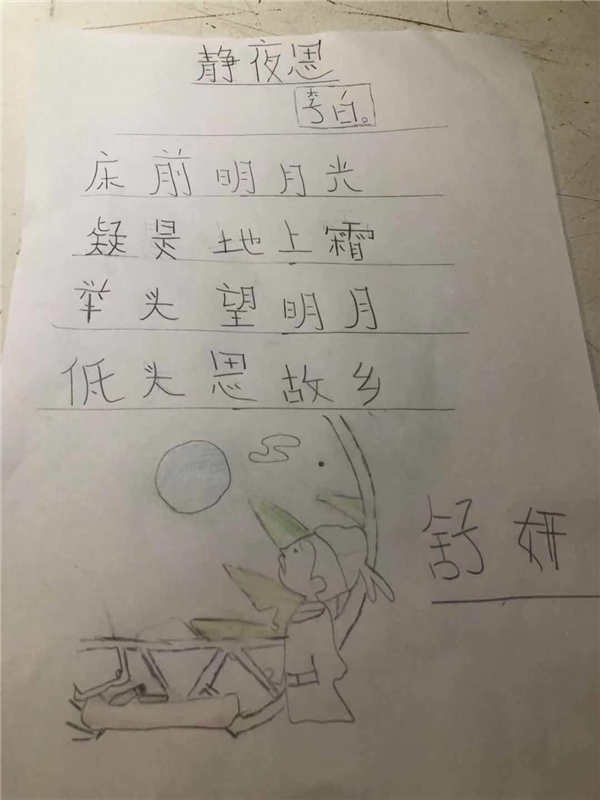 静夜思
李白。
床前明月光
疑是地上霜
举头望明月
低头思故乡
舒妍